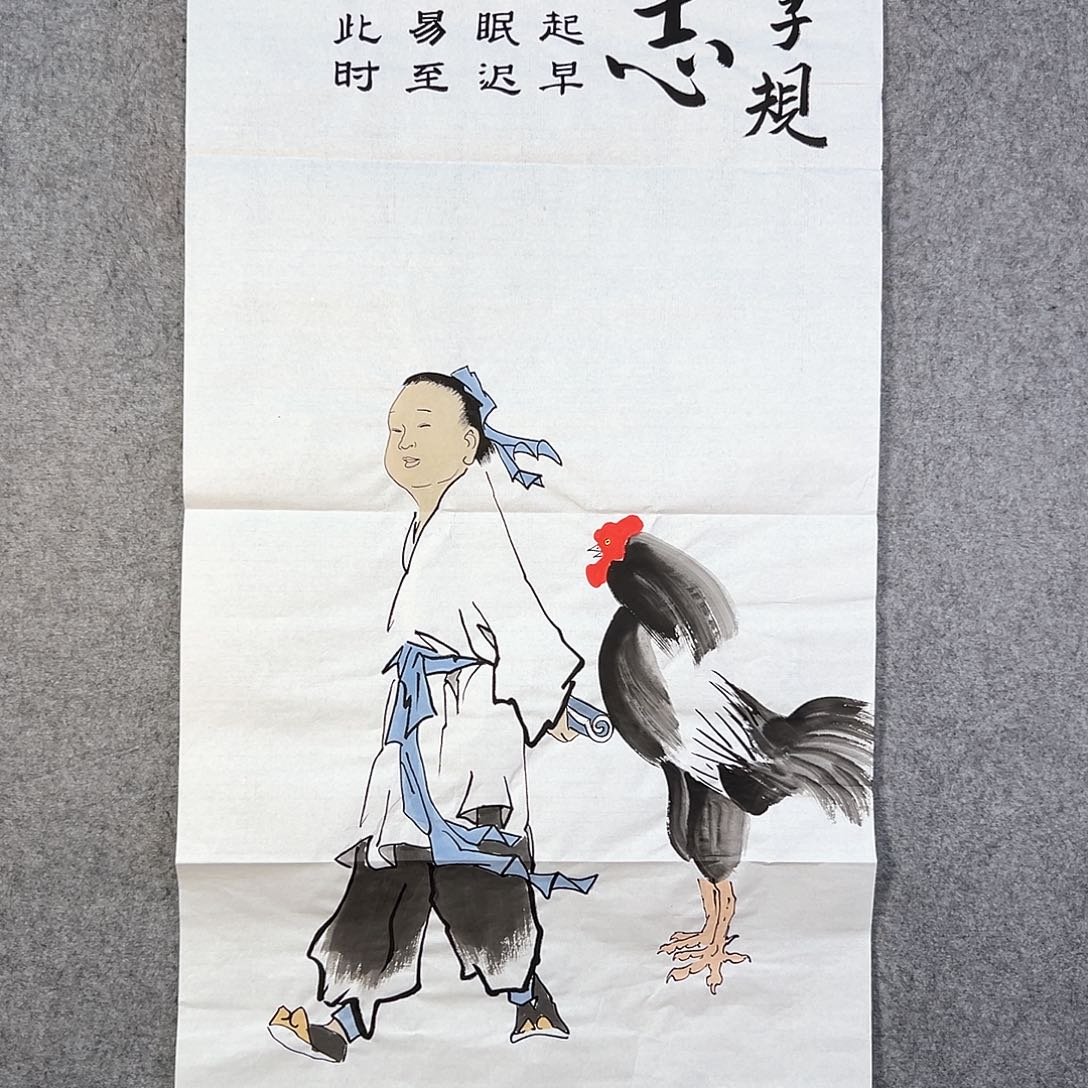 子規
志
起早
眠迟
易至
此时